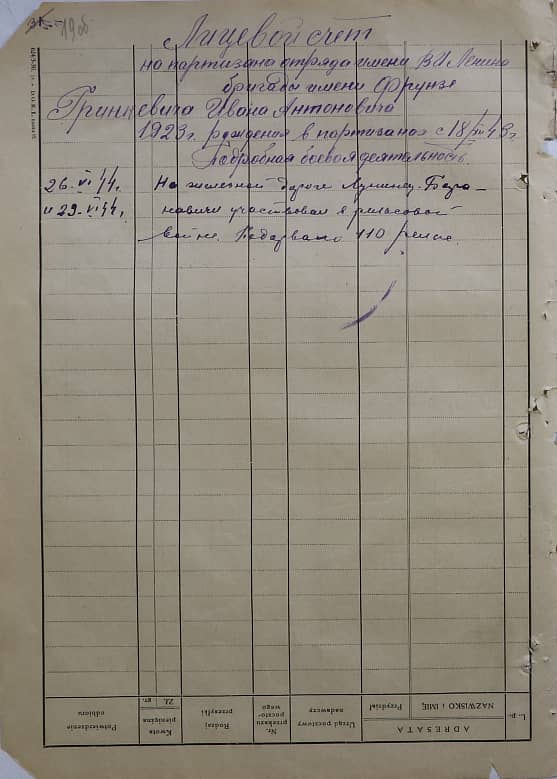 196
Лицевой счёт
на партизана отряда имени В И Ленина
бригады имени Фрунзе
Гринцевича Ивана Антоновича
1923 г. рождения в партизанах с 18/ 43 г
Подробная боевая деятельность.
26. VI 44 г. На железной дороге Лунинец-Бара-
и 29. VI 44 г. новичи участвовал в рельсовой
войне. Подорвано 110 рельс.
L. p.
ADRESATA
NAZWISKO i IMIĘ
Przydział
Urząd pocztowy nadawczy
Nr. przekazu poczto-wego
Rodzaj przesyłki
Kwota pieniężna
Zł. gr.
Potwierdzenie odbioru